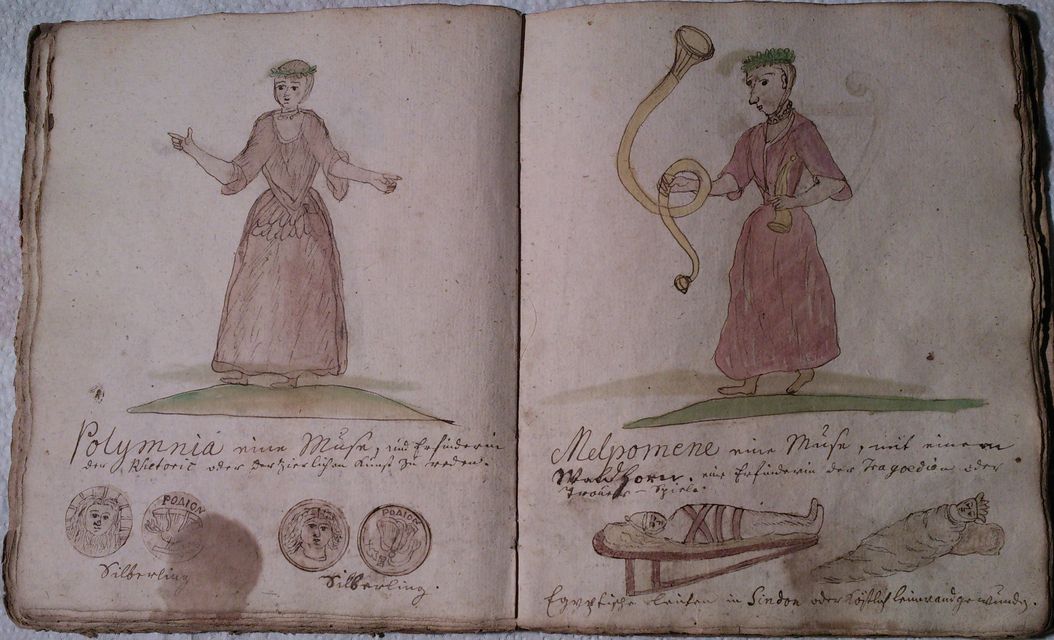 Polymnia eine Muse, und Erfinderin
der Rhetoric oder der zierlichen Kunst zu reden.
ΡΟΔΙΟΝ
ΡΟΔΙΟΝ
Silberling
Silberling.
Melpomene eine Muse, mit einem
Waldhorn. eine Erfinderin der Tragoedien oder
Trauer-Spiele.
Egyptische Leichen in Sindon oder köstlich leinwand gewunden.